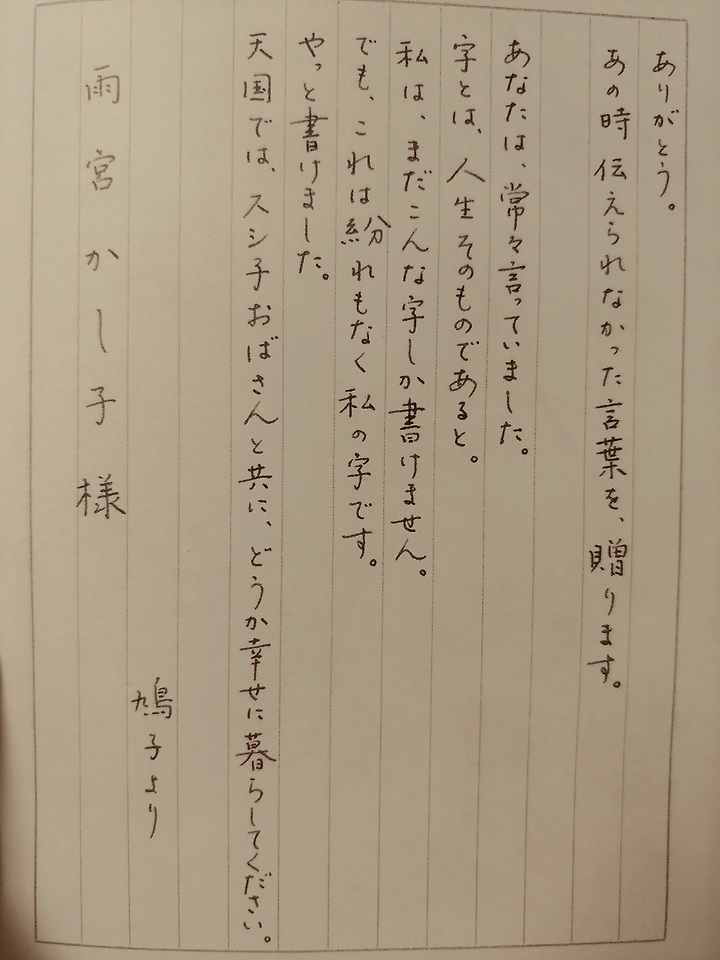 ありがとう。
あの時伝えられなかった言葉を、贈ります。
あなたは、常々言っていました。
字とは、人生そのものであると。
私は、まだこんな字しか書けません。
でも、これは紛れもなく私の字です。
やっと書けました。
天国では、スシ子おばさんと共に、どうか幸せに暮らしてください。
鳩子より
雨宮かし子様